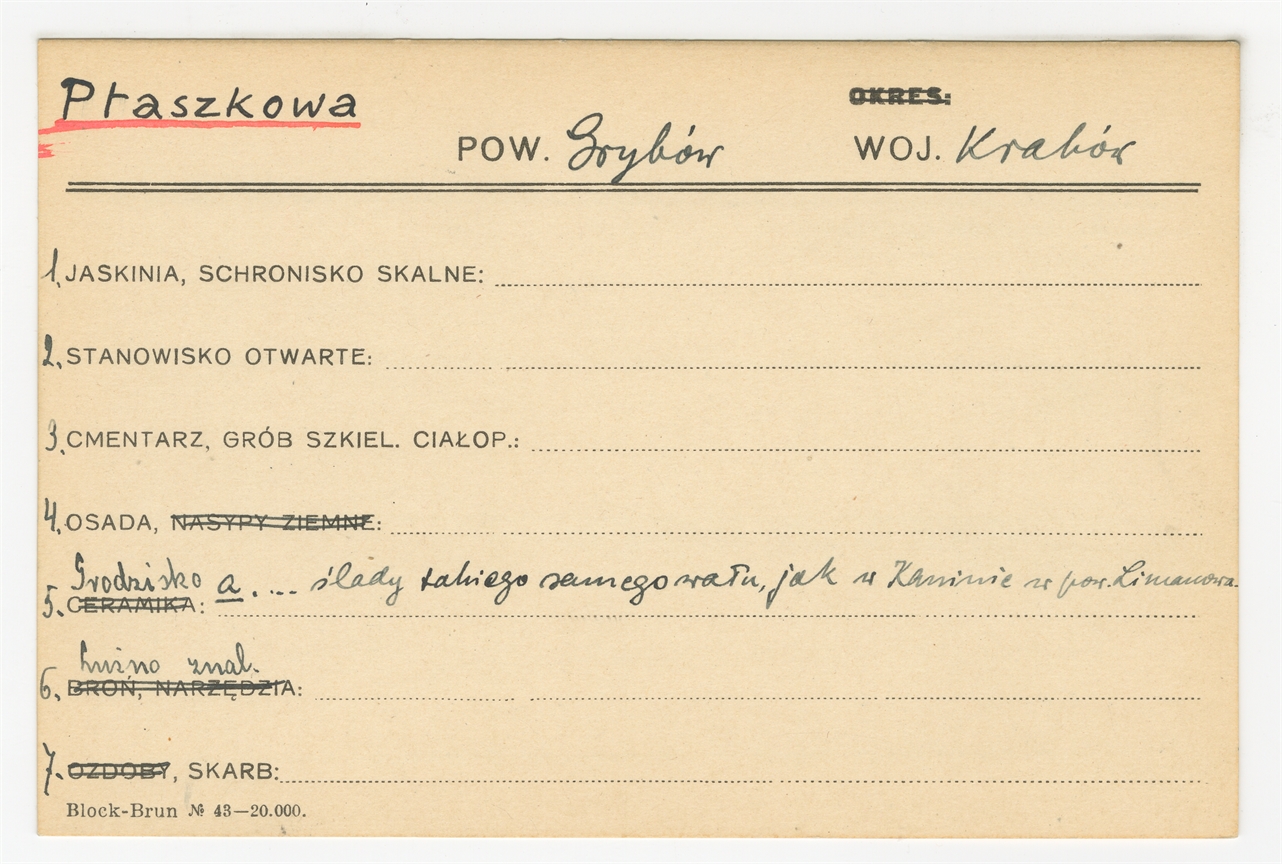 Ptaszkowa
OKRES:
POW. Grybów WOJ. Kraków
1. JASKINIA, SCHRONISKO SKALNE:
2. STANOWISKO OTWARTE:
3. CMENTARZ, GRÓB SZKIEL. CIAŁOP.:
4. OSADA, NASYPY ZIEMNE:
Grodzisko a .... ślady takiego samego wału, jak w Kaninie w pow. Limanowa.
5. CERAMIKA:
Luźno znal.
6. BROŃ, NARZĘDZIA:
7. OZDOBY, SKARB:
Block-Brun № 43—20.000.